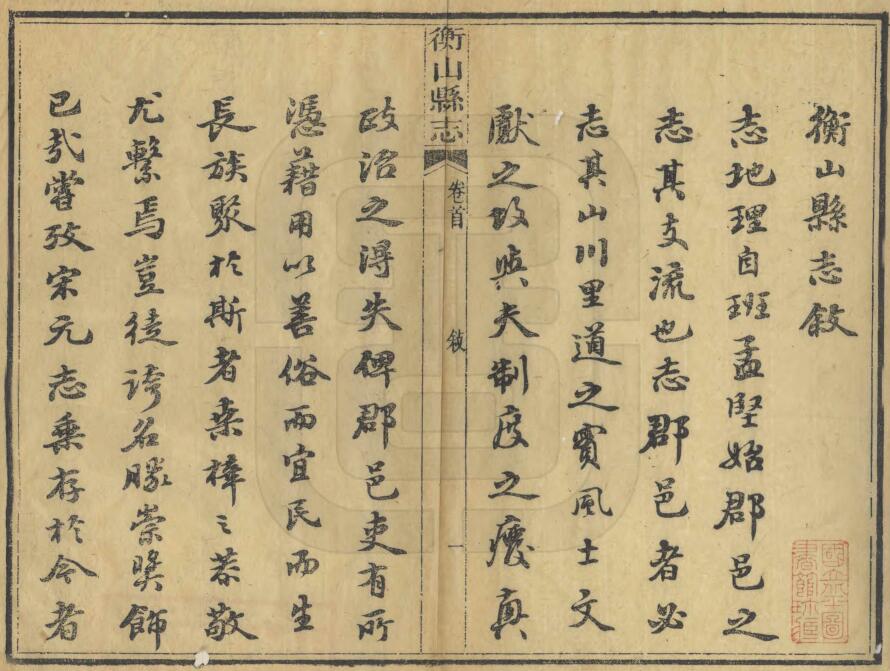 衡山縣志敘
志地理自班孟堅始郡邑之
志其支流也志郡邑者必
志其山川里道之實風土文
獻之攷與夫制度之癈真
衡山縣志
卷首
敘
一
政治之得失俾郡邑吏有所
憑藉用以善俗而宜民而生
長族聚於斯者桑梓之恭敬
尤繫焉豈徒誇名勝崇奬飾
已哉嘗攷宋元志乘存於今者